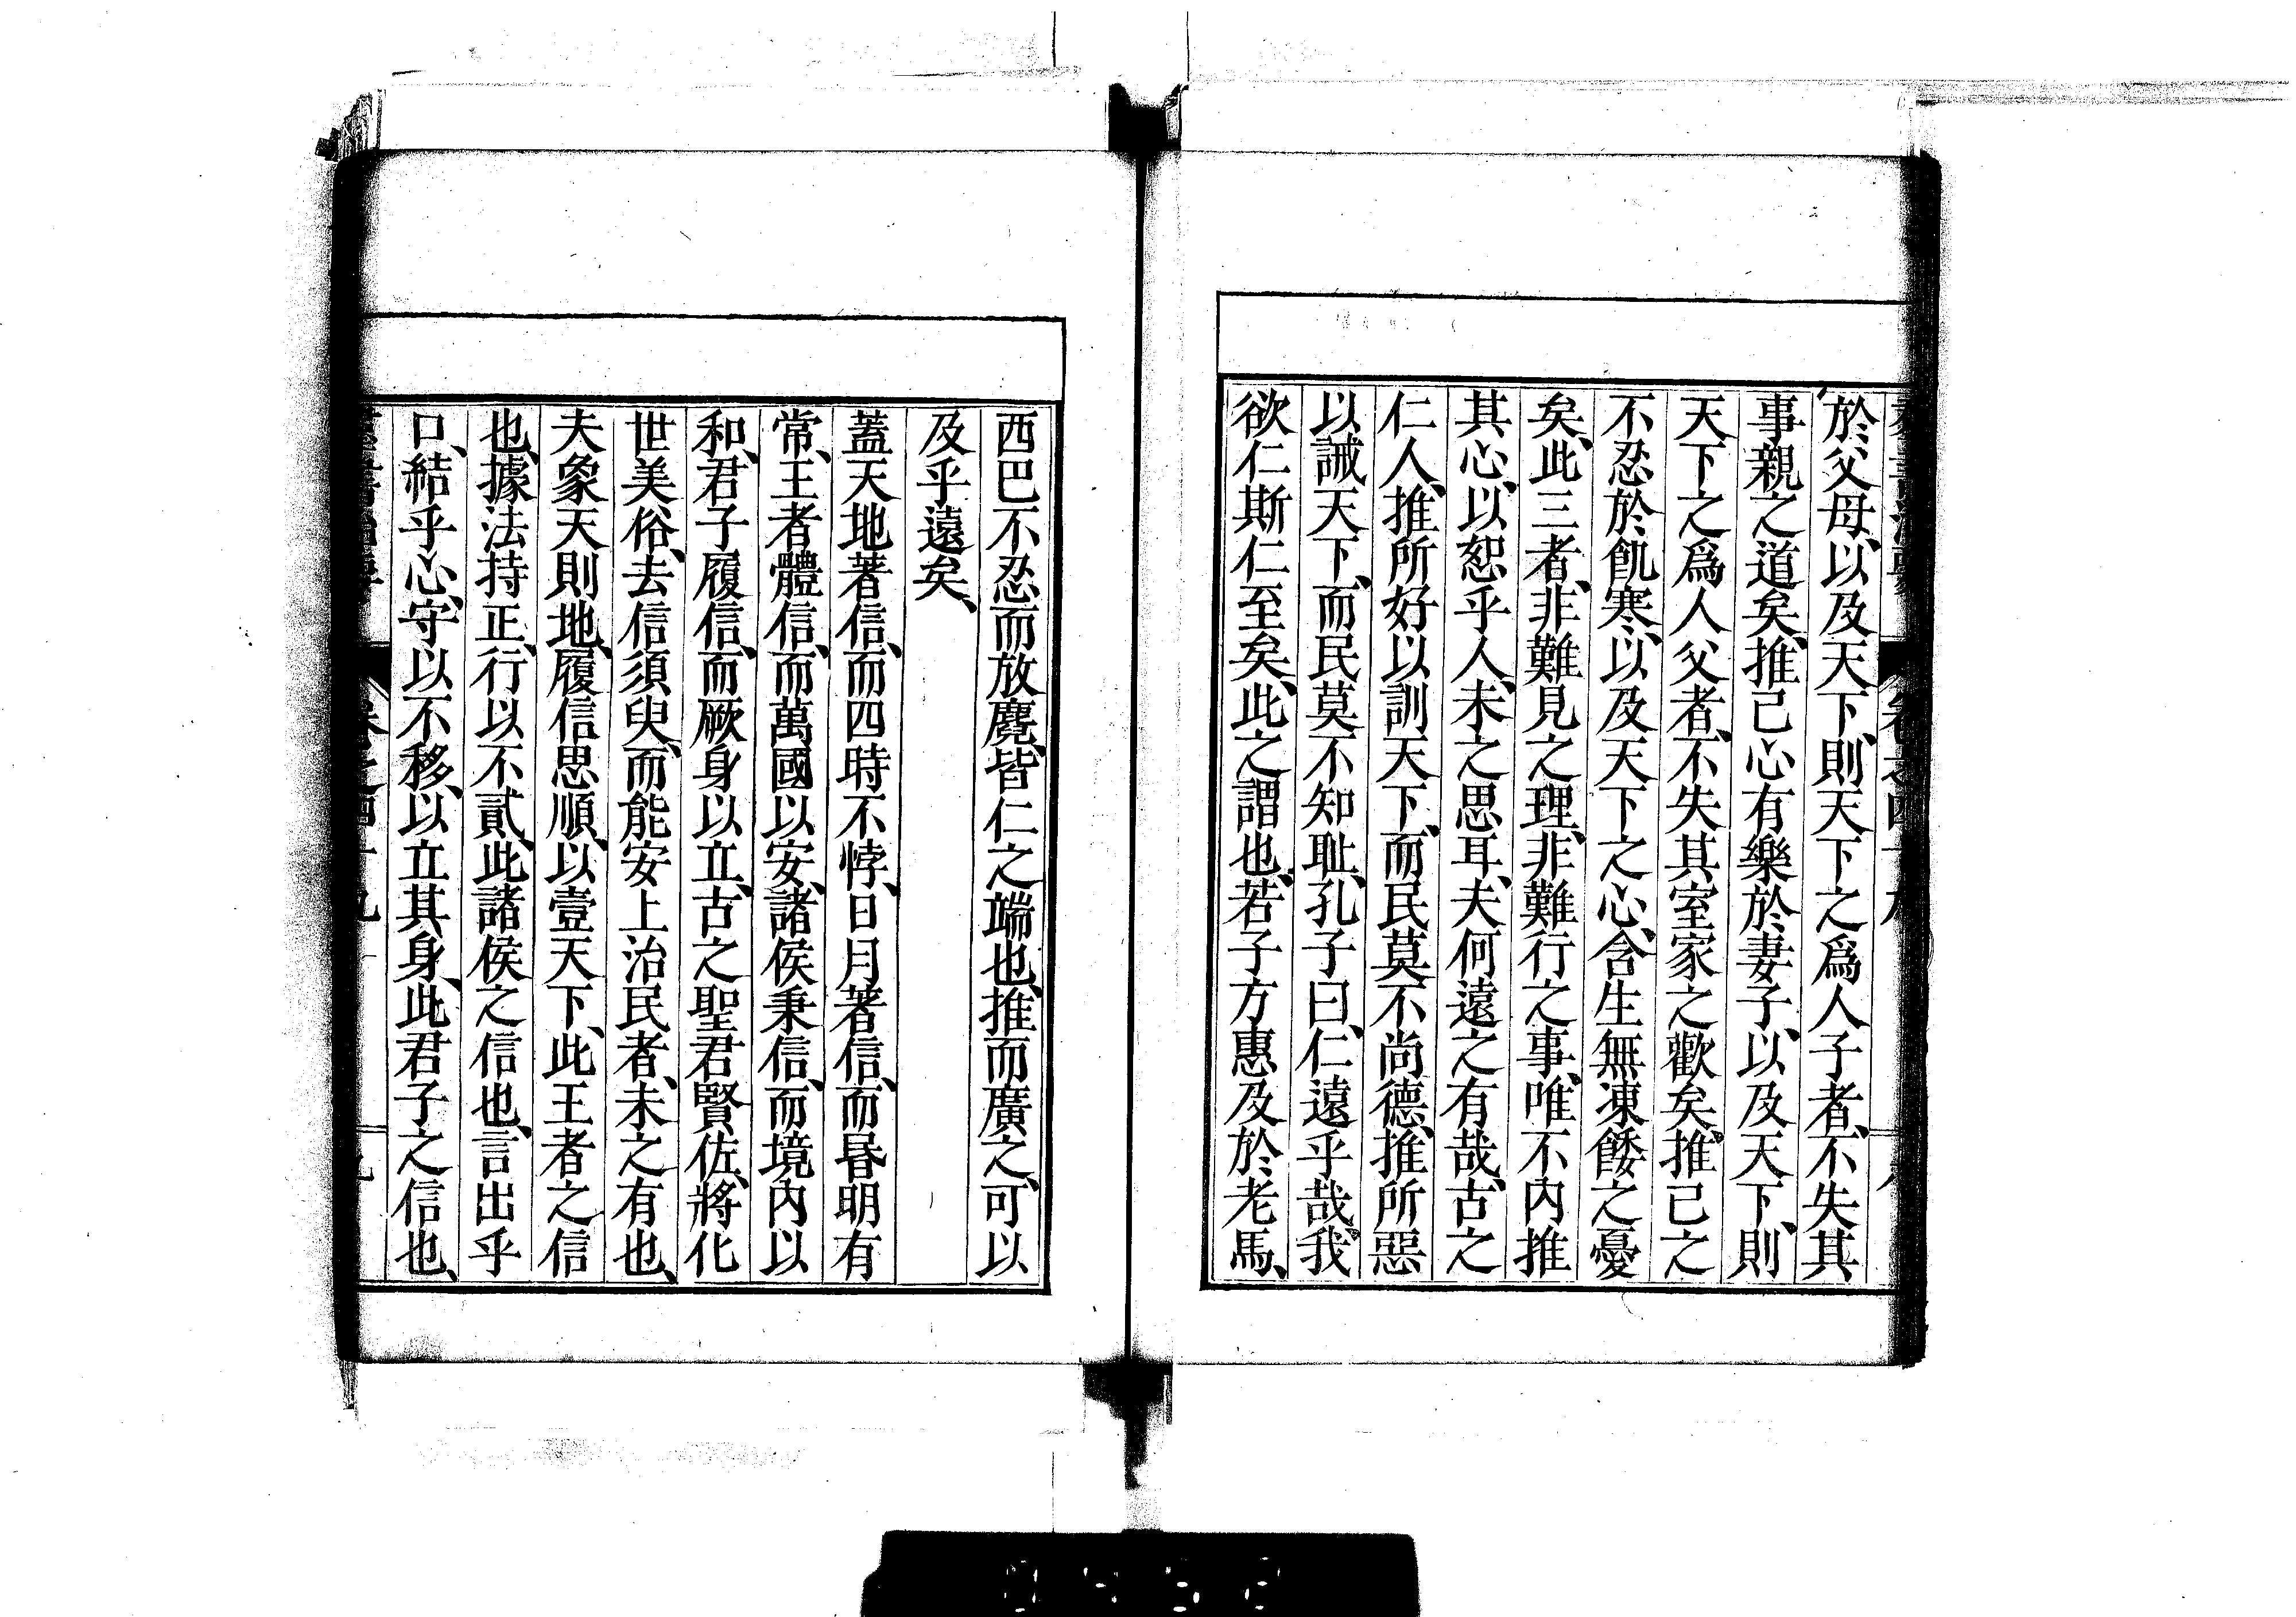 於父母、以及天下、則天下之爲人子者、不失其
事親之道矣、推己心有樂於妻子、以及天下、則
天下之爲人父者、不失其室家之歡矣、推己之
不忍於飢寒、以及天下之心、含生無凍餧之憂
矣、此三者、非難見之理、非難行之事、唯不內推
其心、以恕乎人、未之思耳、夫何遠之有哉、古之
仁人、推所好以訓天下、而民莫不尚德、推所惡
以誡天下、而民莫不知耻、孔子曰、仁遠乎哉、我
欲仁斯仁至矣、此之謂也、若子方惠及於老馬、
西巴不忍而放麑、皆仁之端也、推而廣之、可以
及乎遠矣、
蓋天地著信、而四時不悖、日月著信、而昏明有
常、王者體信、而萬國以安、諸侯秉信、而境內以
和、君子履信、而厥身以立、古之聖君賢佐、將化
世美俗、去信須臾、而能安上治民者、未之有也、
夫象天則地、履信思順、以壹天下、此王者之信
也、據法持正、行以不貳、此諸侯之信也、言出乎
口、結乎心、守以不移、以立其身、此君子之信也、